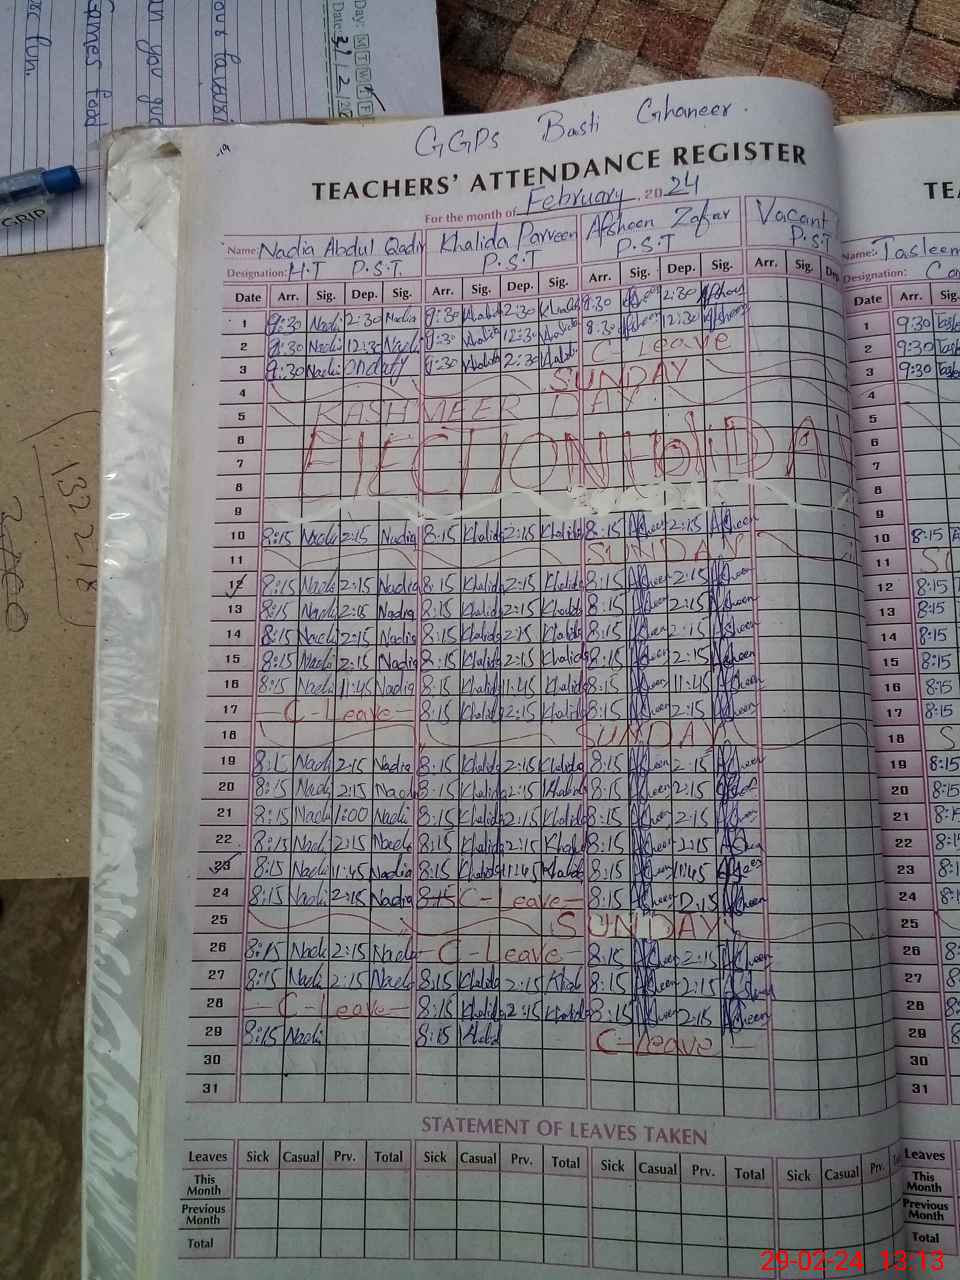 GGPs Basti Ghaneer.
TEACHERS' ATTENDANCE REGISTER
For the month of February 20 24
Name: Nadia Abdul Qadir Khalida Parveen Afsheen Zafar Vacant
Designation: H.T P.S.T. P.S.T P.S.T P.S.T
Date Arr. Sig. Dep. Sig. Arr. Sig. Dep. Sig. Arr. Sig. Dep. Sig. Arr. Sig.
1 9:30 Nadi 2:30 Nadia 9:30 Khalid 2:30 Khalid 8:30 2:30
2 9:30 Nadi 12:30 Nadi 9:30 Khalid 12:30 Khalida 8:30 12:30
3 9:30 Nadi onduty 9:30 Khalida 2:30 C-Leave
4 SUNDAY
5 KASHMEER DAY
6
7 ELECTION HoliDA
8
9
10 8:15 Nadi 2:15 Nadia 8:15 Khalid 2:15 Khalida 8:15 Afsheen 2:15 Afsheen
11 SUNDAY
12 8:15 Nadi 2:15 Nadia 8:15 Khalid 2:15 Khalida 8:15 Afsheen 2:15 Afsheen
13 8:15 Nadi 2:15 Nadia 8:15 Khalid 2:15 Khalida 8:15 Afsheen 2:15 Afsheen
14 8:15 Nadi 2:15 Nadia 8:15 Khalid 2:15 Khalida 8:15 Afsheen 2:15 Afsheen
15 8:15 Nadi 2:15 Nadia 8:15 Khalid 2:15 Khalida 8:15 Afsheen 2:15 Afsheen
16 8:15 Nadi 11:45 Nadia 8:15 Khalid 11:45 Khalida 8:15 Afsheen 11:45 Afsheen
17 C-Leave 8:15 Khalid 2:15 Khalida 8:15 Afsheen 2:15 Afsheen
18 SUNDAY
19 8:15 Nadi 2:15 Nadia 8:15 Khalid 2:15 Khalida 8:15 Afsheen 2:15 Afsheen
20 8:15 Nadi 2:15 Nadi 8:15 Khalid 2:15 Khalid 8:15 Afsheen 2:15
21 8:15 Nadi 1:00 Nadi 8:15 Khalid 2:15 Khalid 8:15 Afsheen 2:15 Afsheen
22 8:15 Nadi 2:15 Nadi 8:15 Khalid 2:15 Khalid 8:15 Afsheen 2:15
23 8:15 Nadi 11:45 Nadia 8:15 Khalid 11:45 Khalid 8:15 Afsheen 11:45
24 8:15 Nadi 2:15 Nadia 8:15 C-Leave 8:15 Afsheen 2:15 Afsheen
25 SUNDAY
26 8:15 Nadi 2:15 Nadi C-Leave 8:15 Afsheen 2:15 Afsheen
27 8:15 Nadi 2:15 Nadi 8:15 Khalid 2:15 Khalid 8:15 Afsheen 2:15
28 C-Leave 8:15 Khalid 2:15 Khalid 8:15 Afsheen 2:15 Afsheen
29 8:15 Nadi 8:15 Khalid C-Leave
30
31
STATEMENT OF LEAVES TAKEN
Leaves Sick Casual Prv. Total Sick Casual Prv. Total Sick Casual Prv. Total Sick Casual Prv.
This Month
Previous Month
Total
Name: Tasleem
Designation:
Date Arr. Sig.
1 9:30
2 9:30
3 9:30
4
5
6
7
8
9
10 8:15
11
12 8:15
13 8:15
14 8:15
15 8:15
16 8:15
17 8:15
18
19 8:15
20
21
22
23
24
25
26
27
28
29
30
31
Leaves
This Month
Previous Month
Total
Day: M T W T F
Date:
Games food
fun.
GRIP
13 2 2.18
29-02-24 13:13